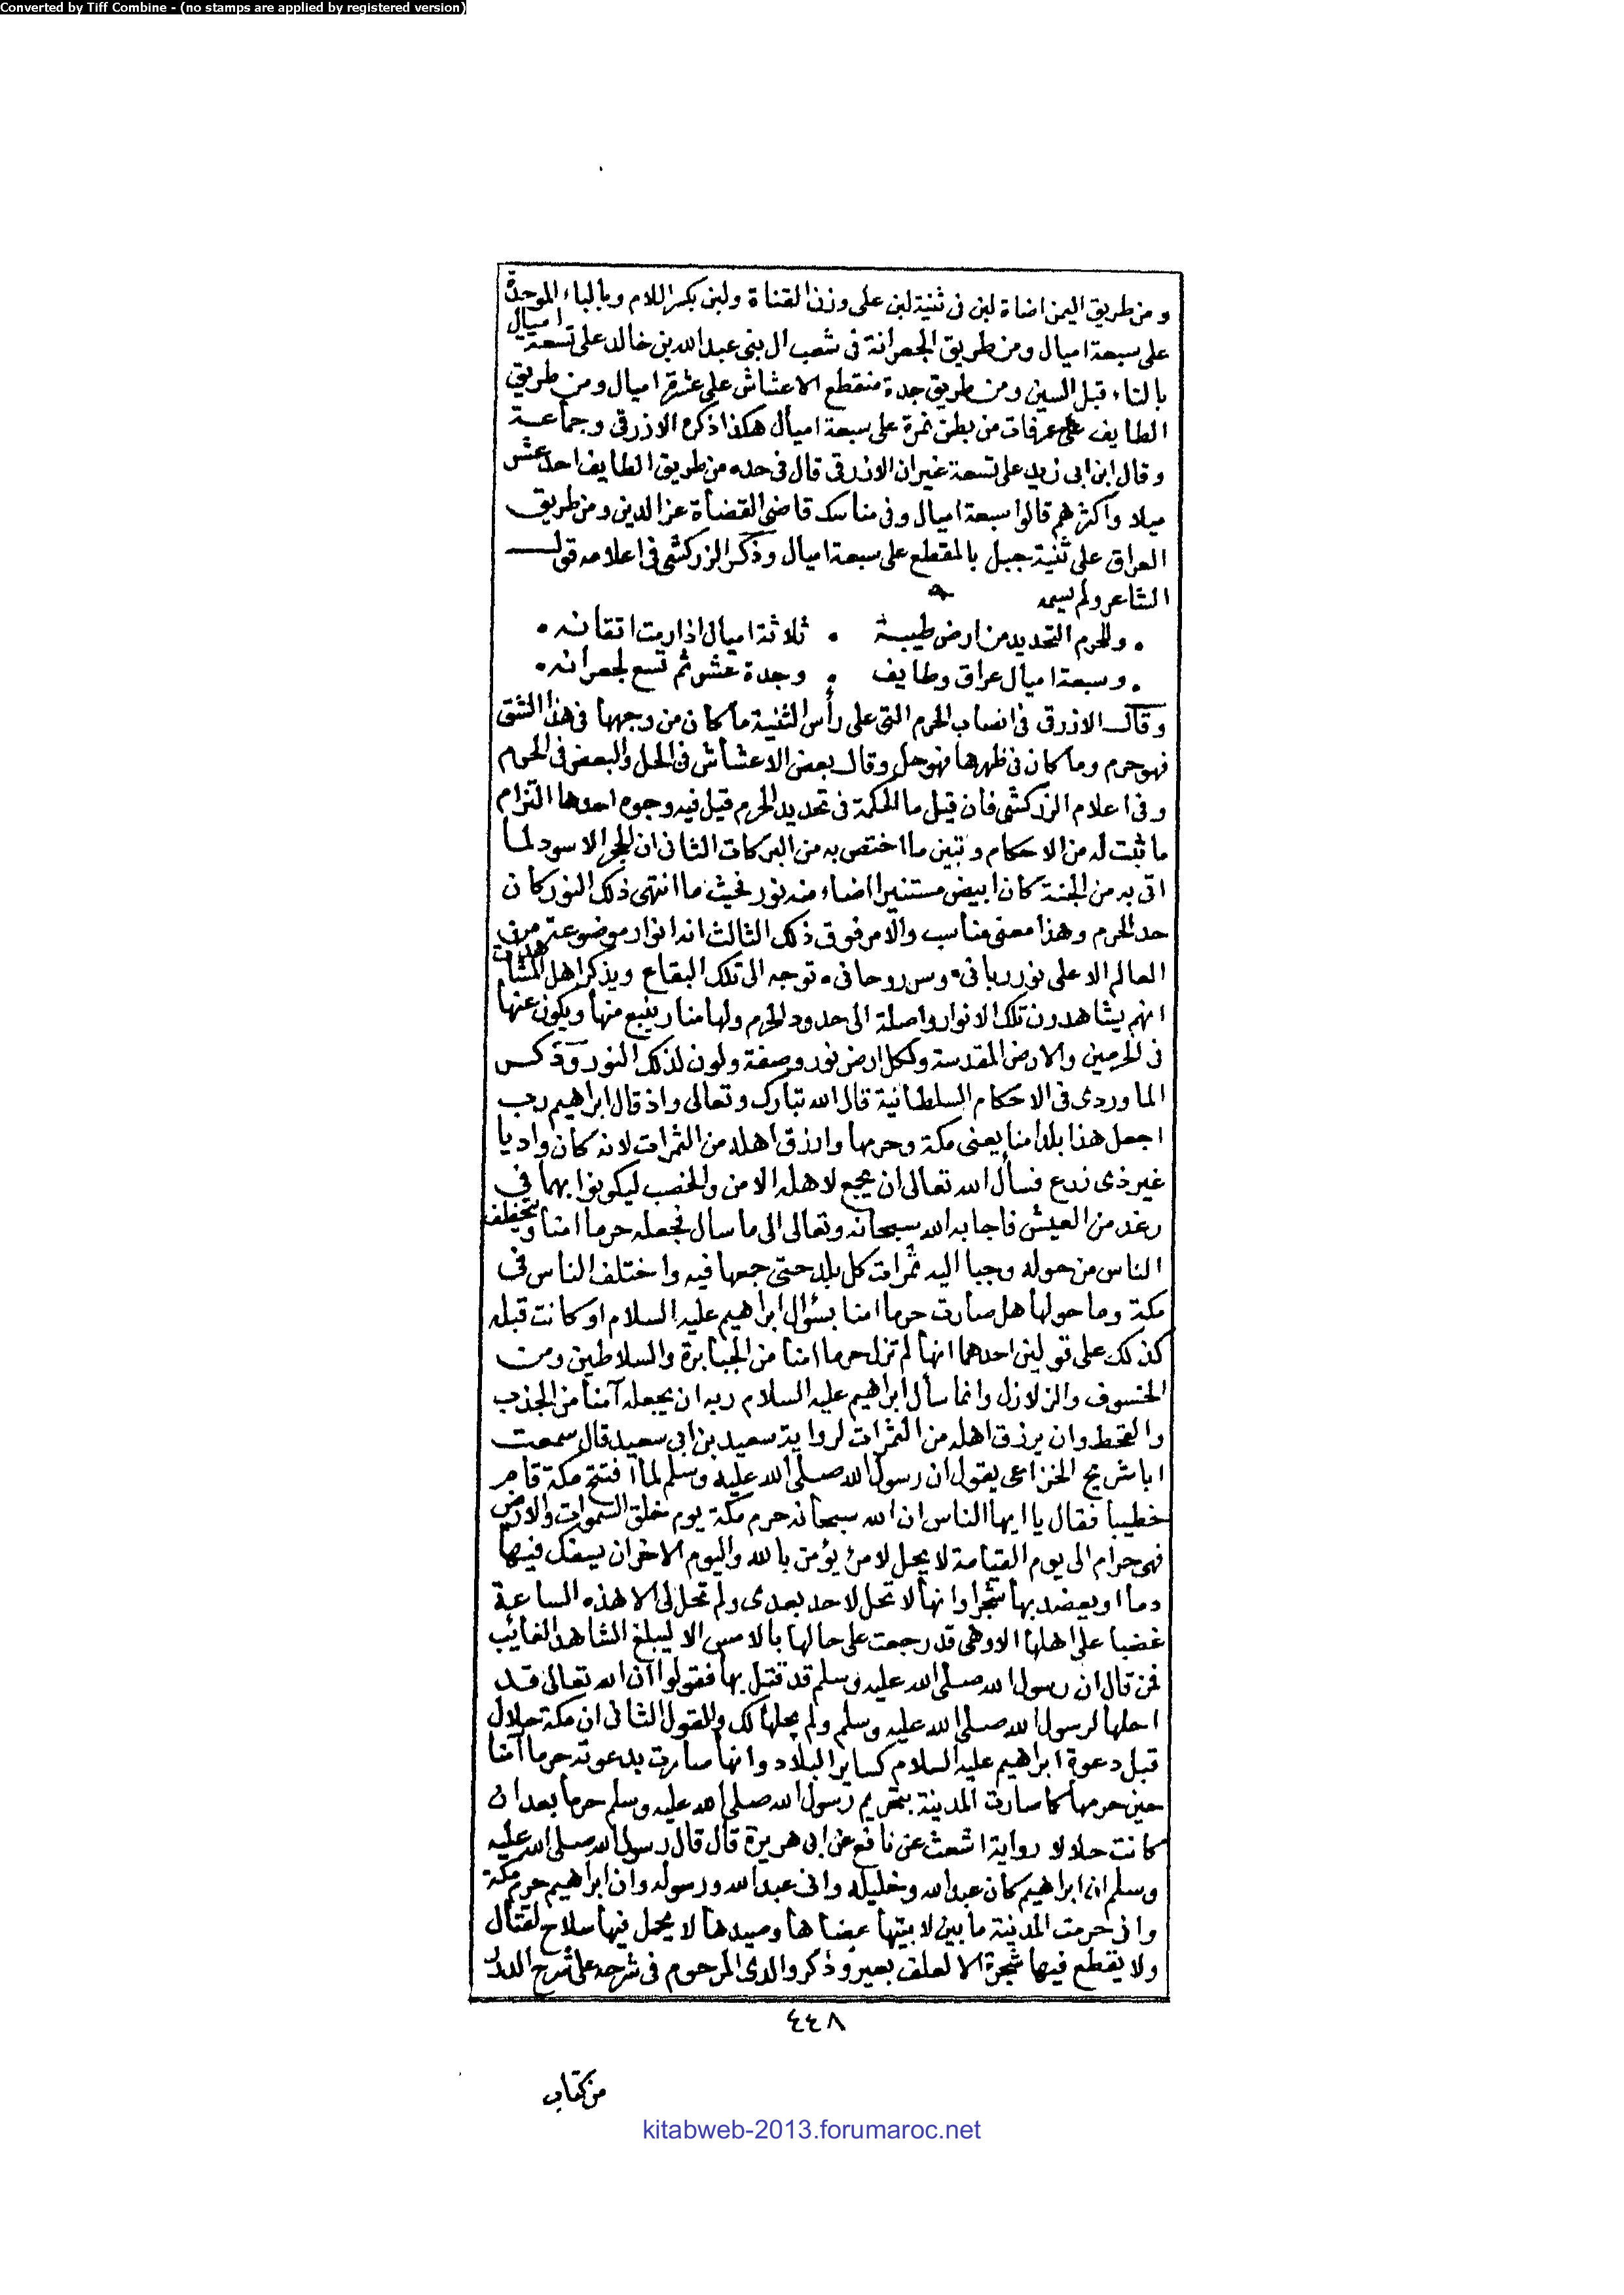 Converted by Tiff Combine - (no stamps are applied by registered version)
ومن طريق اليمن اضاة لبن فى ثنية لبن على وزن القناة ولبن بكسر اللام وبالباء الموحدة
على سبعة اميال ومن طريق الجعرانة فى شعب ال بنى عبد الله بن خالد على تسعة اميال
بالتاء قبل السين ومن طريق جدة منقطع الاعشاش على عشرة اميال ومن طريق
الطايف على عرفات من بطن نمرة على سبعة اميال هكذا ذكره الازرقى وجماعة
وقال ابن ابى زيد على تسعة غير ان الازرقى قال فى حده من طريق الطايف احد عشر
ميلا واكثرهم قالوا سبعة اميال وفى مناسك قاضى القضاة عز الدين ومن طريق
العراق على ثنية جبل بالمقطع على سبعة اميال وذكر الزركشى فى اعلامه قول
الشاعر ولم يسمه
. وللحرم التحديد من ارض طيبة . ثلاثة اميال اذا رمت اتقانه .
. وسبعة اميال عراق وطايف . وجدة عشر ثم تسع لجعرانه .
وقال الازرقى فى انصاب الحرم التى على رأس الثنية ما كان من وجهها فى هذا الشق
فهو حرم وما كان فى ظهرها فهو حل وقال بعض الاعشاش فى الحل والبعض فى الحرم
وفى اعلام الزركشى فان قيل ما الحكمة فى تحديد الحرم قيل فيه وجوه احدها التزام
ما ثبت له من الاحكام وتبين ما اختص به من البركات الثانى ان الحجر الاسود لما
اتى به من الجنة كان ابيض مستنيرا اضاء منه نور فحيث ما انتهى ذلك النور كان
حد الحرم وهذا معنى مناسب والامر فوق ذلك الثالث انه انوار موضوعة من
العالم الاعلى نور ربانى وسر روحانى توجه الى تلك البقاع ويذكر اهل المشاهدات
انهم يشاهدون تلك الانوار واصلة الى حدود الحرم ولها منار ينبع منها ويكون عنها
فى الحرمين والارض المقدسة ولكل ارض نور وصفة ولون لذلك النور وذكر
الماوردى فى الاحكام السلطانية قال الله تبارك وتعالى واذ قال ابراهيم رب
اجعل هذا بلدا امنا يعنى مكة وحرمها وارزق اهله من الثمرات لانه كان واديا
غير ذى زرع فسأل الله تعالى ان يجمع لاهله الامن والخصب ليكونوا بهما فى
رغد من العيش فاجابه الله سبحانه وتعالى الى ما سال فجعله حرما امنا ويتخطف
الناس من حوله وجبا اليه ثمرات كل بلد حتى جمعها فيه واختلف الناس فى
مكة وما حولها هل صارت حرما امنا بسؤال ابراهيم عليه السلام او كانت قبله
كذلك على قولين احدهما انها لم تزل حرما امنا من الجبابرة والسلاطين ومن
الخسوف والزلازل وانما سأل ابراهيم عليه السلام ربه ان يجعله آمنا من الجذب
والقحط وان يرزق اهله من الثمرات لرواية سعيد بن ابى سعيد قال سمعت
ابا شريح الخزاعى يقول ان رسول الله صلى الله عليه وسلم لما افتتح مكة قام
خطيبا فقال يا ايها الناس ان الله سبحانه حرم مكة يوم خلق السموات والارض
فهى حرام الى يوم القيامة لا يحل لامرئ يؤمن بالله واليوم الاخر ان يسفك فيها
دما او يعضد بها شجرا وانها لا تحل لاحد بعدى ولم تحل لى الا هذه الساعة
غضبا على اهلها الا وهى قد رجعت على حالها بالامس الا ليبلغ الشاهد الغائب
فمن قال ان رسول الله صلى الله عليه وسلم قد قتل بها فقولوا ان الله تعالى قد
احلها لرسول الله صلى الله عليه وسلم ولم يحلها لك والقول الثانى ان مكة حلال
قبل دعوة ابراهيم عليه السلام كساير البلاد وانها صارت بدعوته حرما آمنا
حين حرمها كما صارت المدينة بتحريم رسول الله صلى الله عليه وسلم حرما بعد ان
كانت حلالا رواية اشعث عن نافع عن ابى هريرة قال قال رسول الله صلى الله عليه
وسلم ان ابراهيم كان عبد الله وخليله وانى عبد الله ورسوله وان ابراهيم حرم مكة
وانى حرمت المدينة ما بين لابيتها عضاها وصيدها لا يحمل فيها سلاح لقتال
ولا يقطع فيها شجرة الا لعلف بعير وذكر والدى المرحوم فى شرحه على شرح الدرر
٤٤٨
من كتاب
kitabweb-2013.forumaroc.net